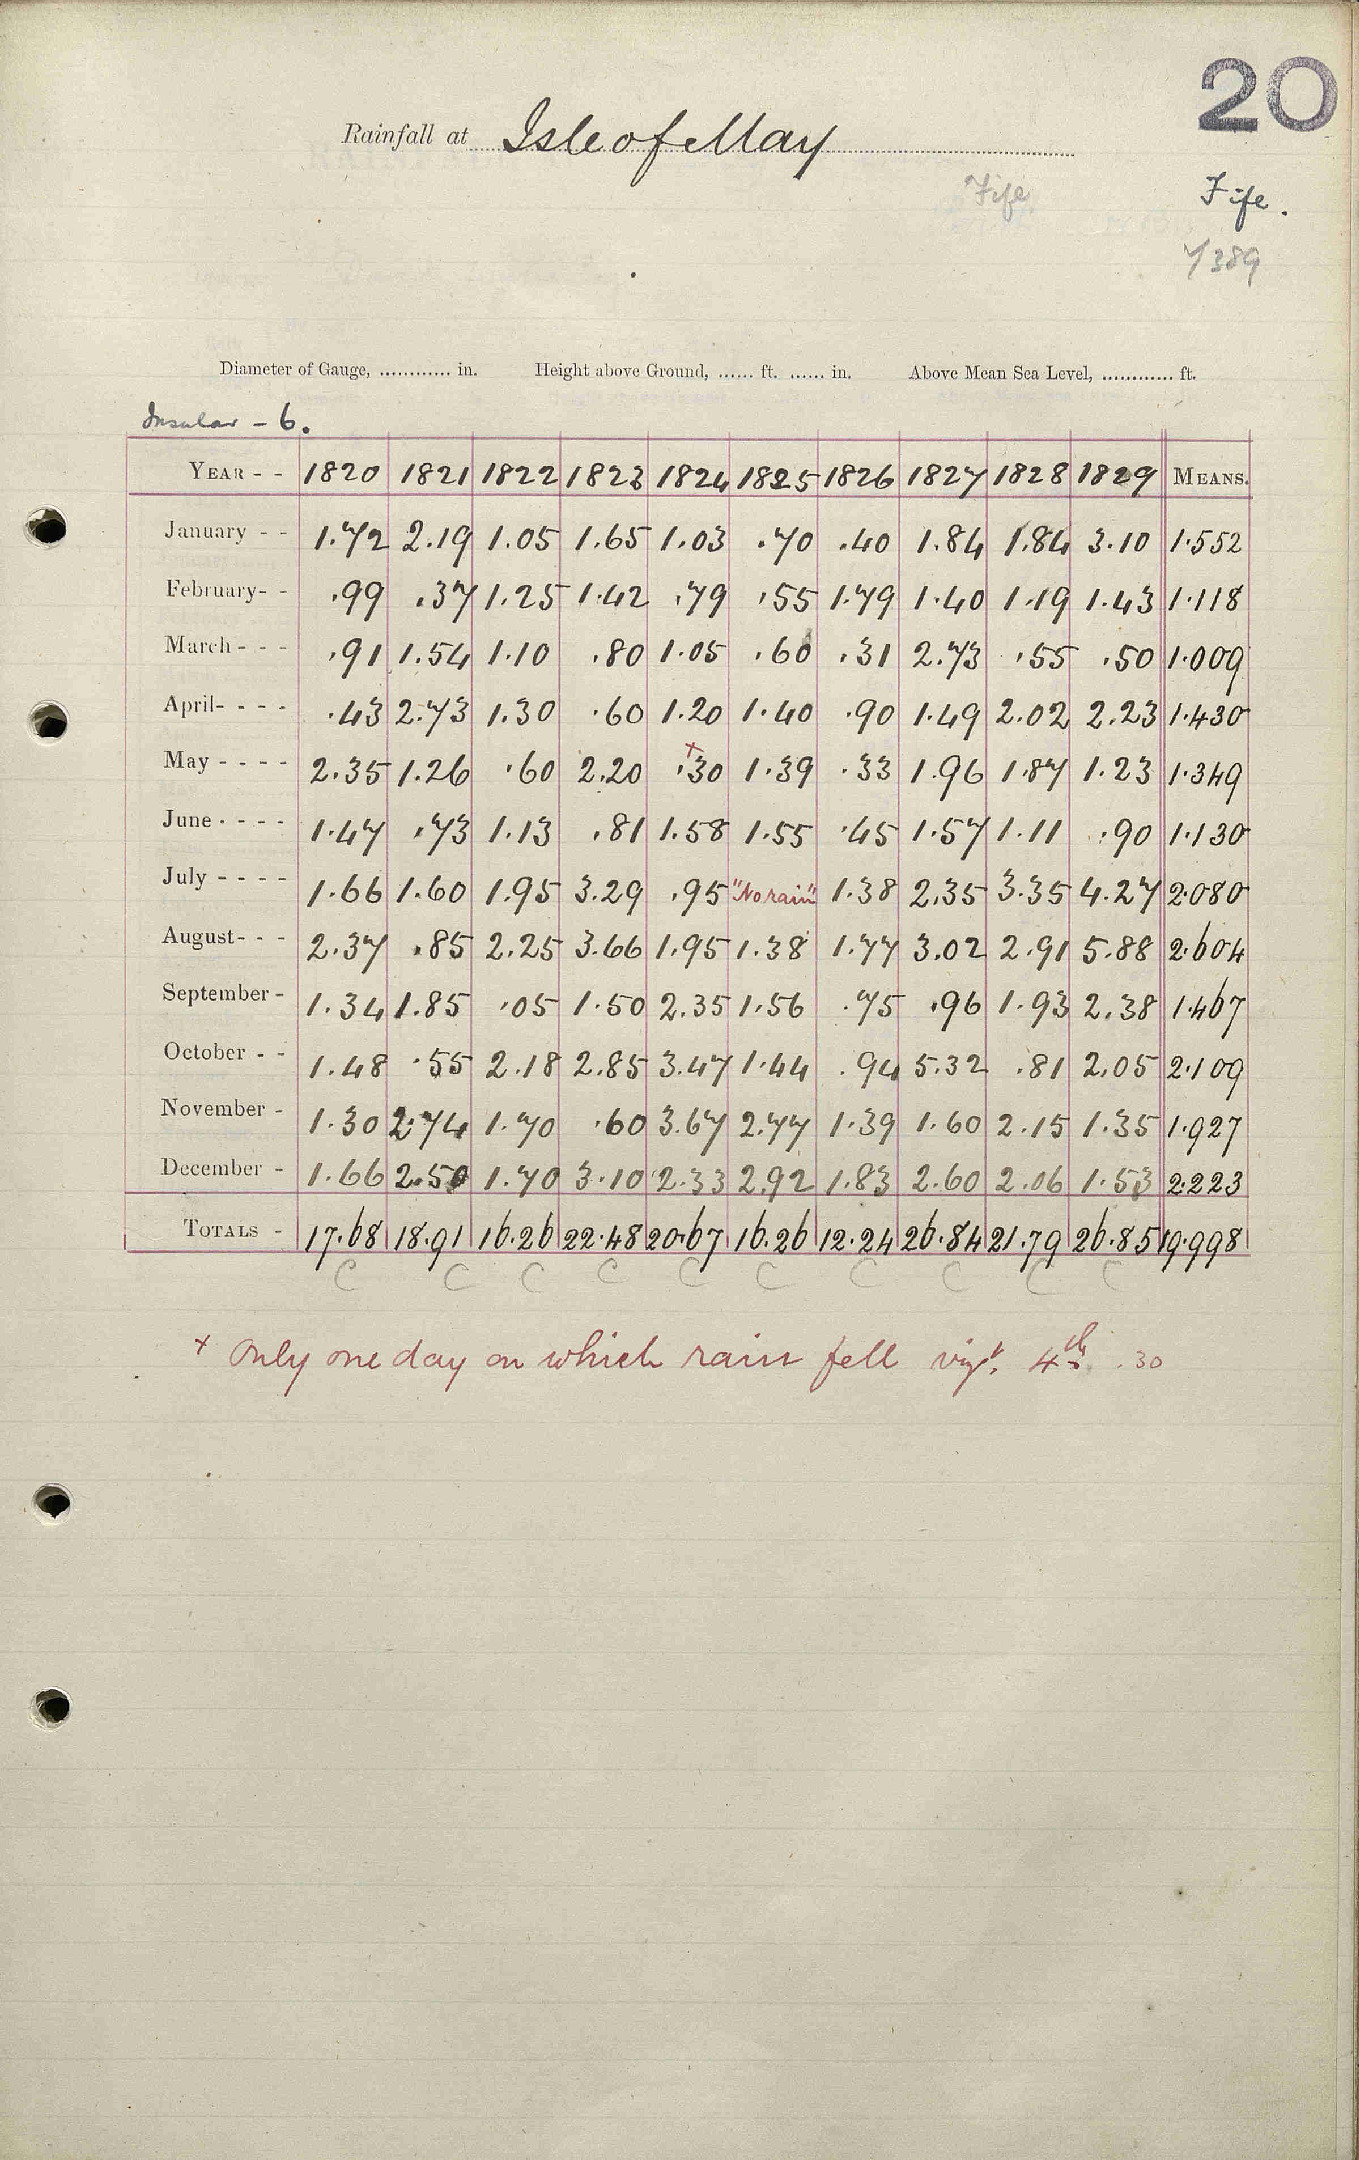 20
Rainfall at Isle of May
Fife Fife.
7/389
Diameter of Gauge, ............ in. Height above Ground, ...... ft. ...... in. Above Mean Sea Level, ............ ft.
Insular - 6.
YEAR - - 1820 1821 1822 1823 1824 1825 1826 1827 1828 1829 MEANS.
January - - 1.72 2.19 1.05 1.65 1.03 .70 .40 1.84 1.84 3.10 1.552
February- - .99 .37 1.25 1.42 .79 .55 1.79 1.40 1.19 1.43 1.118
March - - - .91 1.54 1.10 .80 1.05 .60 .31 2.73 .55 .50 1.009
April- - - - .43 2.73 1.30 .60 1.20 1.40 .90 1.49 2.02 2.23 1.430
May - - - - 2.35 1.26 .60 2.20 +.30 1.39 .33 1.96 1.87 1.23 1.349
June - - - - 1.47 .73 1.13 .81 1.58 1.55 .45 1.57 1.11 .90 1.130
July - - - - 1.66 1.60 1.95 3.29 .95 "No rain" 1.38 2.35 3.35 4.27 2.080
August- - - 2.37 .85 2.25 3.66 1.95 1.38 1.77 3.02 2.91 5.88 2.604
September - 1.34 1.85 .05 1.50 2.35 1.56 .75 .96 1.93 2.38 1.467
October - - 1.48 .55 2.18 2.85 3.47 1.44 .94 5.32 .81 2.05 2.109
November - 1.30 2.74 1.70 .60 3.67 2.77 1.39 1.60 2.15 1.35 1.927
December - 1.66 2.50 1.70 3.10 2.33 2.92 1.83 2.60 2.06 1.53 2.223
TOTALS - 17.68 18.91 16.26 22.48 20.67 16.26 12.24 26.84 21.79 26.85 19.998
C C C C C C C C C C
+ Only one day on which rain fell vizt. 4th .30